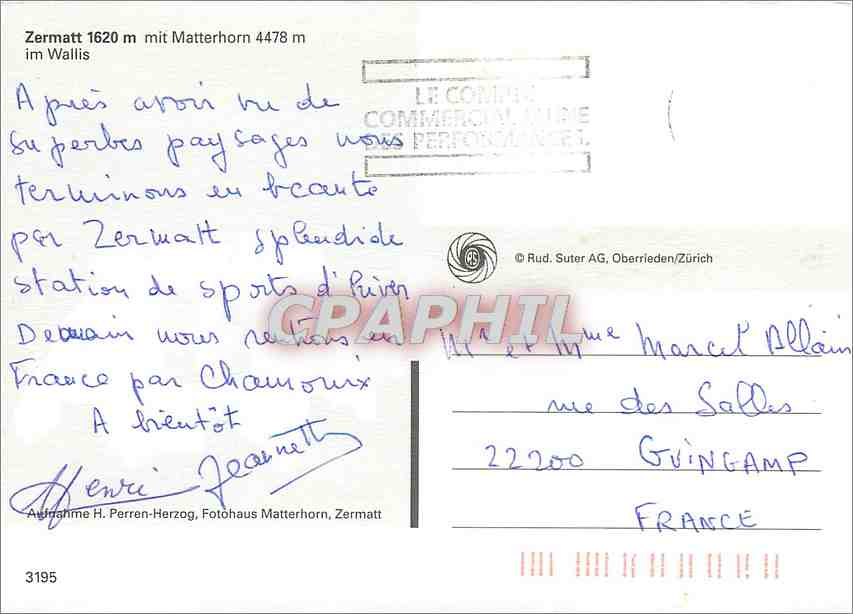 Zermatt 1620 m mit Matterhorn 4478 m
im Wallis
Après avoir vu de
superbes paysages nous
terminons en beauté
par Zermatt splendide
station de sports d'hiver
Demain nous rentrons en
France par Chamonix
A bientôt
Henri Jeannette
Aufnahme H. Perren-Herzog, Fotohaus Matterhorn, Zermatt
3195
LE COMPTE
COMMERCIAL
DES PERFORMANCES.
© Rud. Suter AG, Oberrieden/Zürich
CPAPHIL
Mr et Mme Marcel Allain
rue des Salles
22200 GUINGAMP
FRANCE